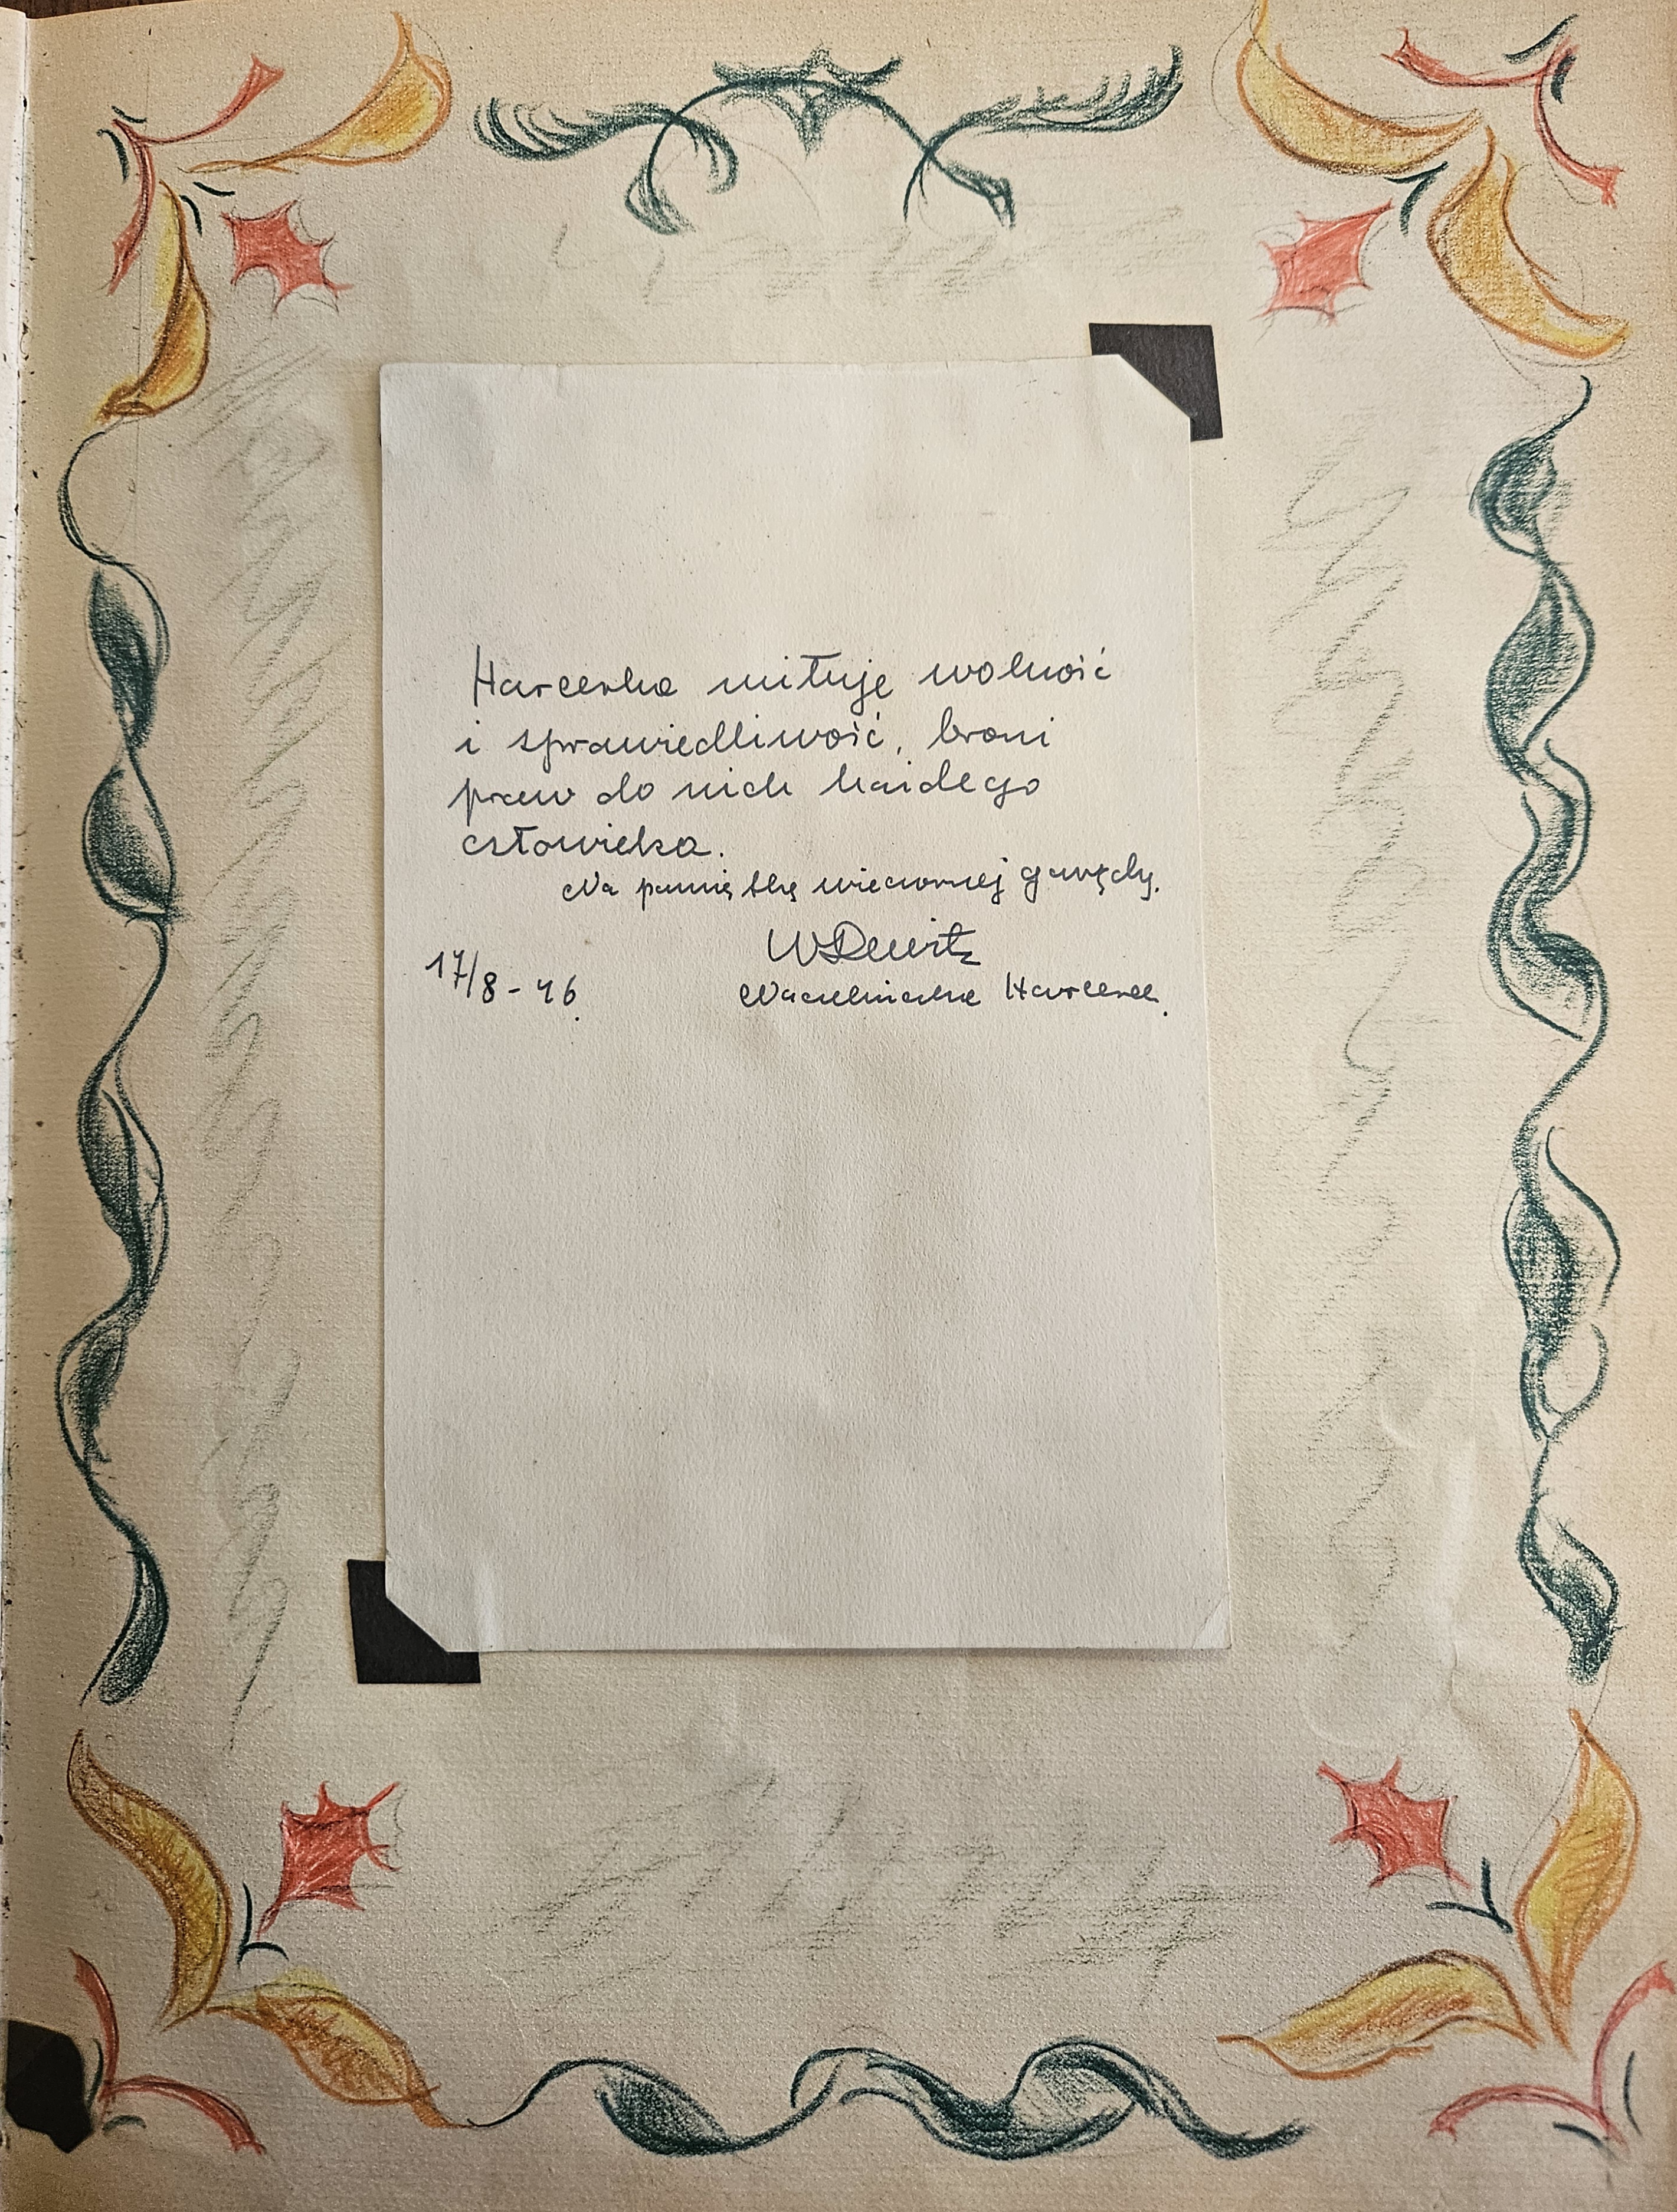 Harcerka miłuje wolność
i sprawiedliwość, broni
praw do nich każdego
człowieka.
Na pamiątkę wieczornej gawędy.
WDewitz
17/8-46.
Naczelniczka Harcerek.